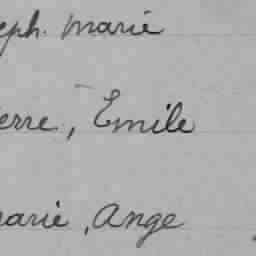 eph. marie
erre, Emile
arie, Ange